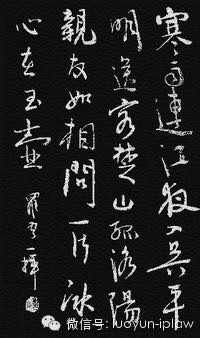 寒雨連江夜入吳平
明送客楚山孤洛陽
親友如相問一片冰
心在玉壺
微信号: luoyun-iplaw